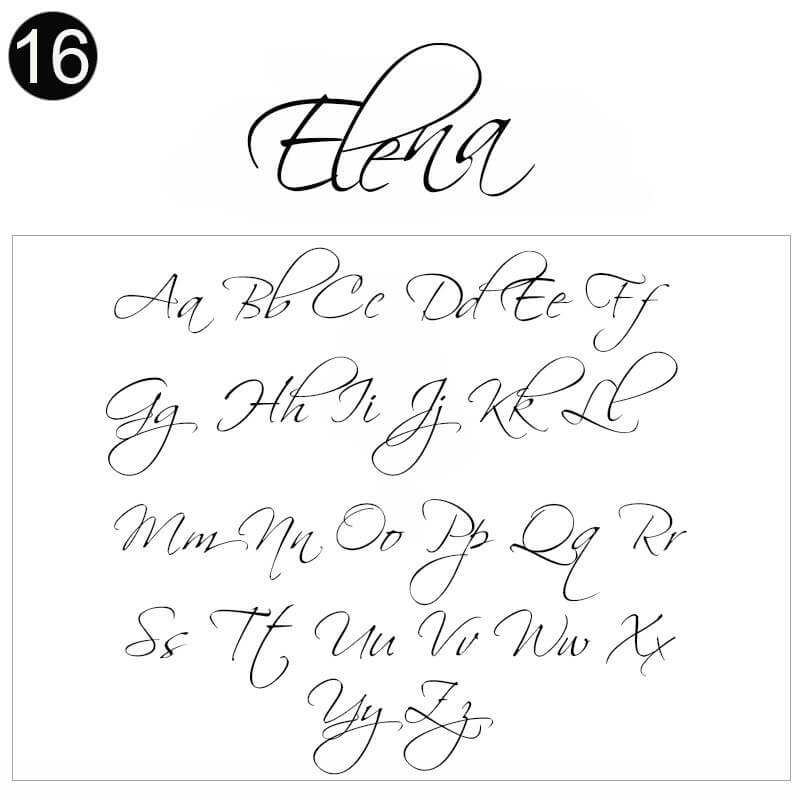 16
Elena
Aa Bb Cc Dd Ee Ff
Gg Hh Ii Jj Kk Ll
Mm Nn Oo Pp Qq Rr
Ss Tt Uu Vv Ww Xx
Yy Zz